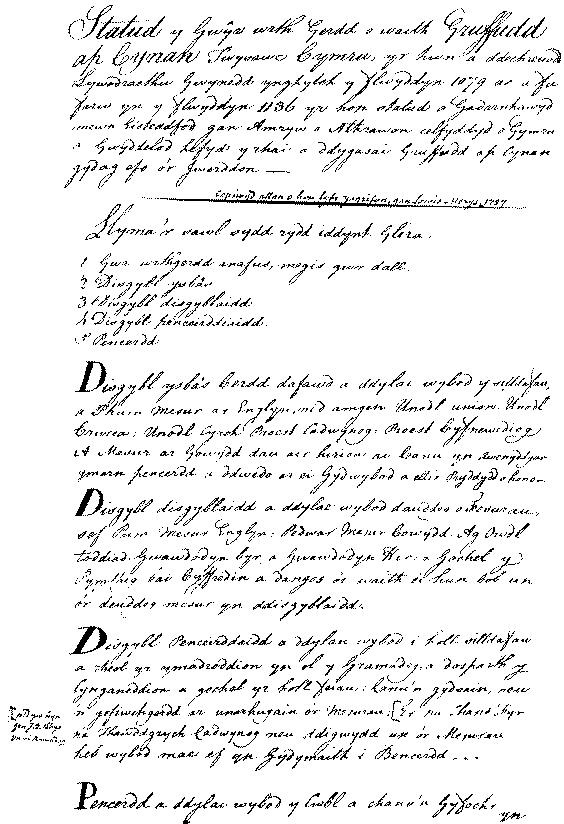 Statud y Gwŷr wrth Gerdd o waith Gruffudd
ap Cynan Twysawc Cymru, yr hwn a ddechreuodd
Lywodraethu Gwynedd ynghylch y flwyddyn 1079 ac a fu
farw yn y flwyddyn 1136 yr hon statud a Gadarnhawyd
mewn Eisteddfod gan Amryw o Athrawon celfyddyd o Gymru
a Gwyddelod Celfyd y rhai a ddygasai Gruffudd ap Cynan
gydag efo o'r Iwerddon —
Copiwyd allan o hen lyfr ysgrifen, gan Lewis Morys, 1737
Llyma'r sawl sydd rydd iddynt Glera.
1 Gwr wrthgerdd anafus, megis gwr dall.
2 Disgybl ysbâs
3 Disgybl disgyblaidd
4 Disgybl penceirddiaidd.
5 Pencerdd
Disgybl ysbâs Cerdd dafawd a ddylae wybod y silldafau,
a Phum Mesur ar Englyn, nid amgen Unodl union. Unodl
Crwcca: Unodl Cyrch Proest Cadwynog: Proest Cyfnewidiog
A Mesur ar Gowydd dau air hirion ac Canu yn
ymarn pencerdd a ddwedo ar ei Gydwybod a ellir Prydydd o hono.
Disgybl disgyblaidd a ddylae wybod dauddeg o Fesurau,
sef Pum Mesur Englyn: Pedwar Mesur Cowydd. Ag Owdl
toddiad: Gwawdodyn byr, a Gwawdodyn Hir: a Gochel y
Pymtheg bai Cyffredin a dangos o'r waith ei hun bob un
o'r deuddeg mesur yn ddisgyblaidd.
Disgybl Penceirddaidd a ddylau wybod i holl silldafau
a rheol yr ymadroddion yn ol y Gramadeg, a dosparth y
Cynganeddion a gochel yr holl feiau: Canu'n gydsain, neu
'n gyfochgerdd ar unarhugain o'r Mesurau. [Er na Thant Byr
na Thawddgyrch Cadwynog neu ddigwydd un o'r Mesurau
heb wybod mae ef yn Gydymaith i Bencerdd...
Pencerdd a ddylae wybod y Cwbl a chanu'n Gyfoch,
yn